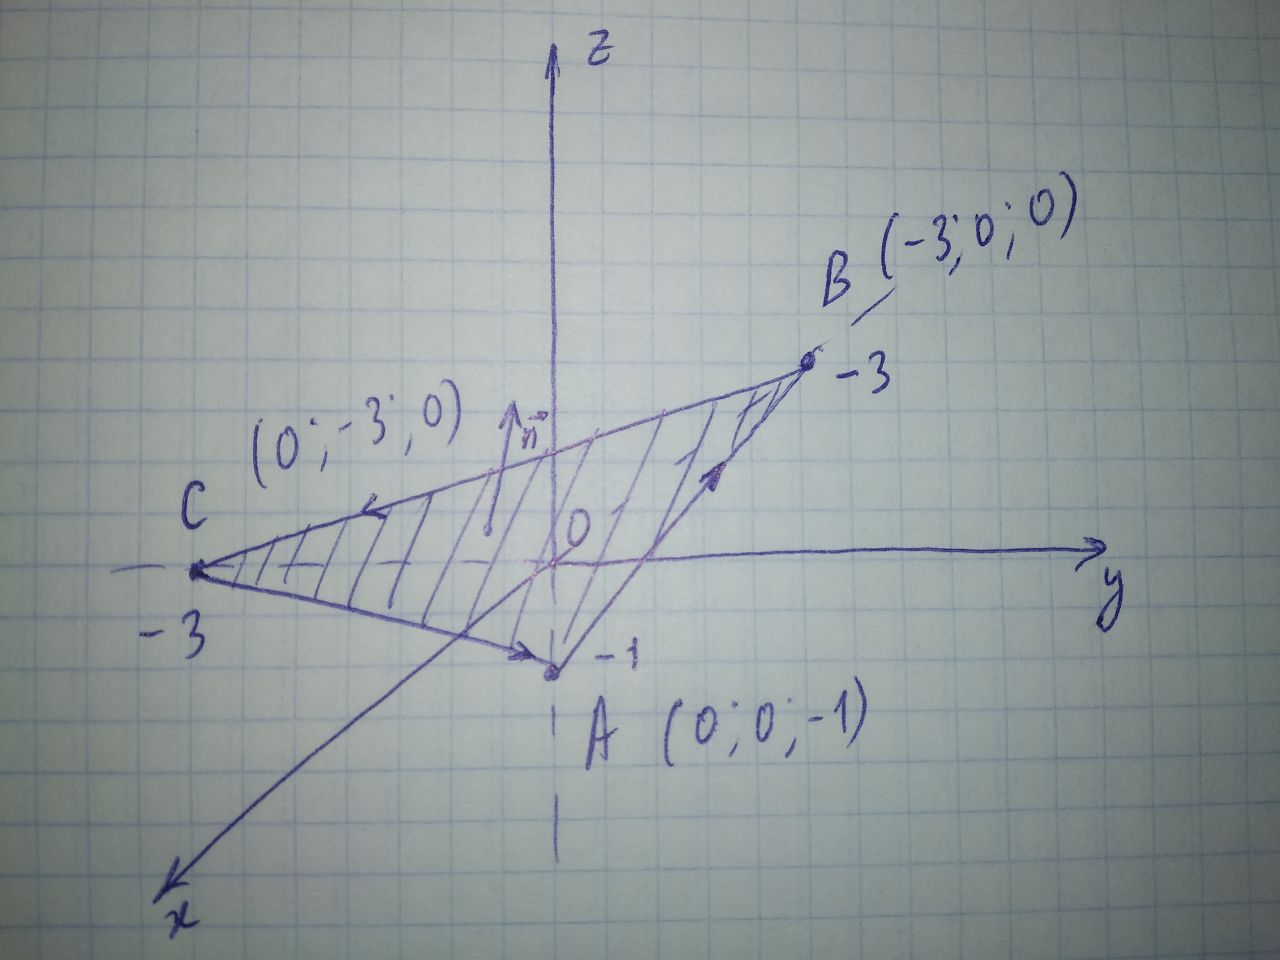 z
B (-3; 0; 0)
-3
(0; -3; 0)
n
C
0
y
-3
-1
A (0; 0; -1)
x